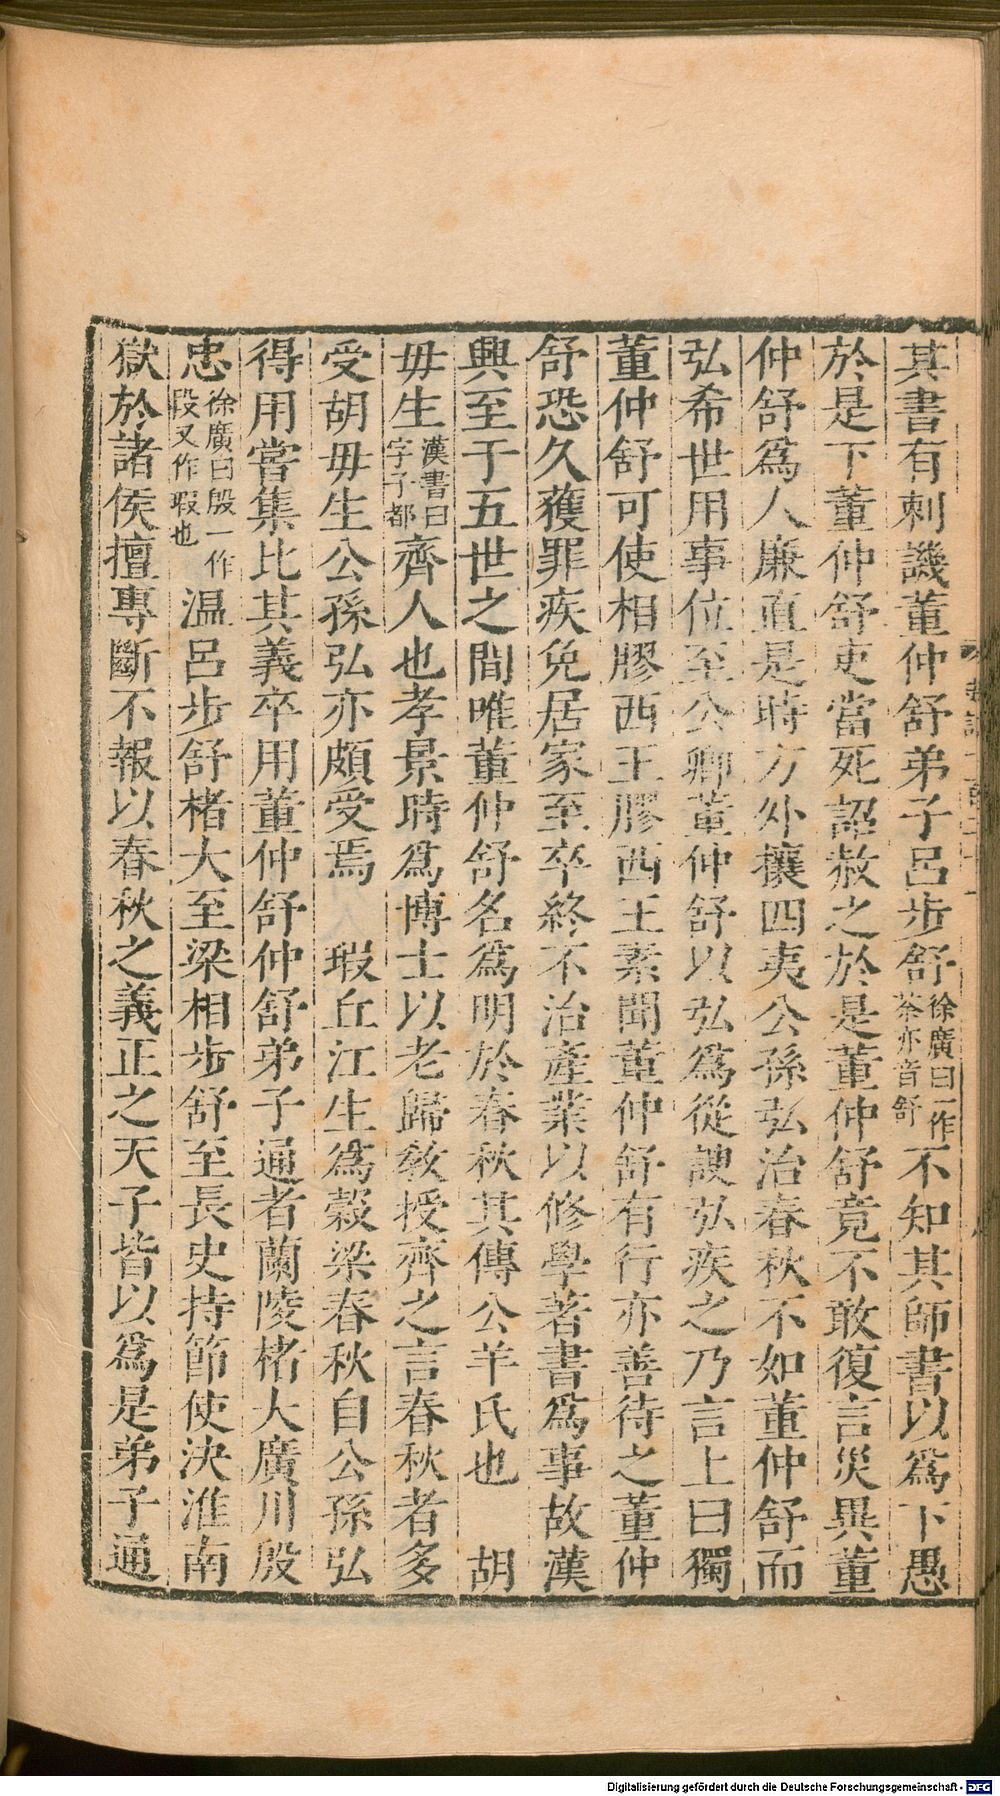 其書有刺譏董仲舒弟子呂步舒徐廣曰一作荼亦音舒不知其師書以爲下愚
於是下董仲舒吏當死詔赦之於是董仲舒竟不敢復言災異董
仲舒爲人廉直是時方外攘四夷公孫弘治春秋不如董仲舒而
弘希世用事位至公卿董仲舒以弘爲從諛弘疾之乃言上曰獨
董仲舒可使相膠西王膠西王素聞董仲舒有行亦善待之董仲
舒恐久獲罪疾免居家至卒終不治產業以修學著書爲事故漢
興至于五世之間唯董仲舒名爲明於春秋其傳公羊氏也 胡
毋生漢書曰字子都齊人也孝景時爲博士以老歸敎授齊之言春秋者多
受胡毋生公孫弘亦頗受焉 瑕丘江生爲穀梁春秋自公孫弘
得用嘗集比其義卒用董仲舒仲舒弟子通者蘭陵楮大廣川殷
忠徐廣曰殷一作段又作瑕也温呂步舒楮大至梁相步舒至長史持節使決淮南
獄於諸侯擅專斷不報以春秋之義正之天子皆以爲是弟子通
Digitalisierung gefördert durch die Deutsche Forschungsgemeinschaft - DFG